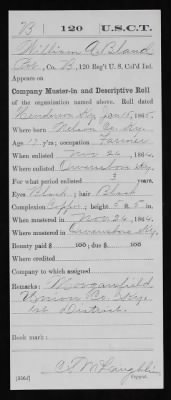 B | 120 | U.S.C.T.
William A. Bland
Pvt., Co. B, 120 Reg't U. S. Col'd Inf.
Appears on
Company Muster-in and Descriptive Roll
of the organization named above. Roll dated
Henderson Ky Jan 15, 1865.
Where born Nelson Co. Ky.
Age 19 y'rs; occupation Farmer
When enlisted Nov. 24, 1864.
Where enlisted Owensboro Ky.
For what period enlisted 3 years.
Eyes Black; hair Black
Complexion Copper; height 5 ft. 5 in.
When mustered in Nov. 24, 1864.
Where mustered in Owensboro Ky.
Bounty paid $ 100; due $ 100
Where credited
Company to which assigned
Remarks: Morganfield
Union Co. Ky.
1st District.
Book mark:
C. T. McLaughlin
Copyist.